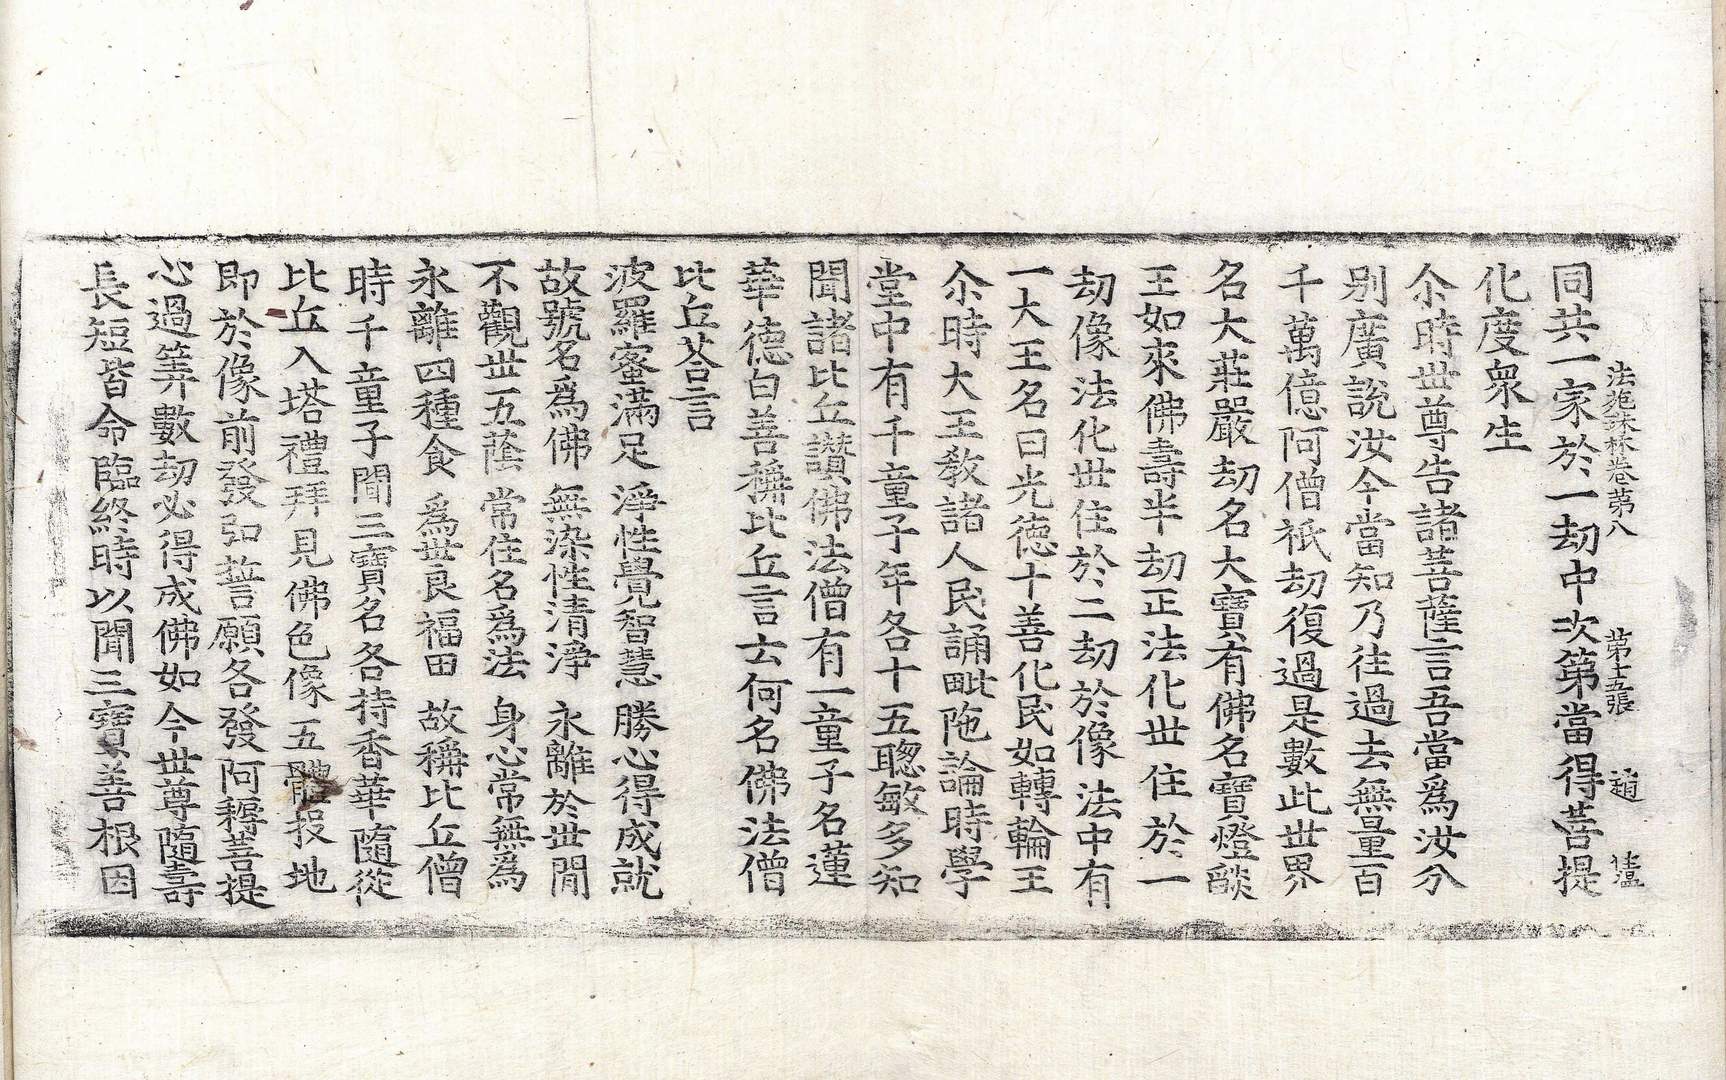 法苑珠林卷第八 第十五張 趙
同共一家於一劫中次第當得菩提
化度衆生
尒時世尊告諸菩薩言吾當爲汝分
别廣説汝今當知乃往過去無量百
千萬億阿僧祇劫復過是數此世界
名大莊嚴劫名大寶有佛名寶燈燄
王如來佛壽半劫正法化世住於一
劫像法化世住於二劫於像法中有
一大王名曰光德十善化民如轉輪王
尒時大王敎諸人民誦毗陁論時學
堂中有千童子年各十五聦敏多知
聞諸比丘讃佛法僧有一童子名蓮
華德白善稱比丘言云何名佛法僧
比丘荅言
波羅蜜滿足 淨性覺智慧 勝心得成就
故號名爲佛 無染性清淨 永離於世閒
不觀世五蔭 常住名爲法 身心常無爲
永離四種食 爲世良福田 故稱比丘僧
時千童子聞三寶名各持香華隨從
比丘入塔禮拜見佛色像五體投地
即於像前發弘誓願各發阿耨菩提
心過筭數劫必得成佛如今世尊隨壽
長短皆命臨終時以聞三寶善根因